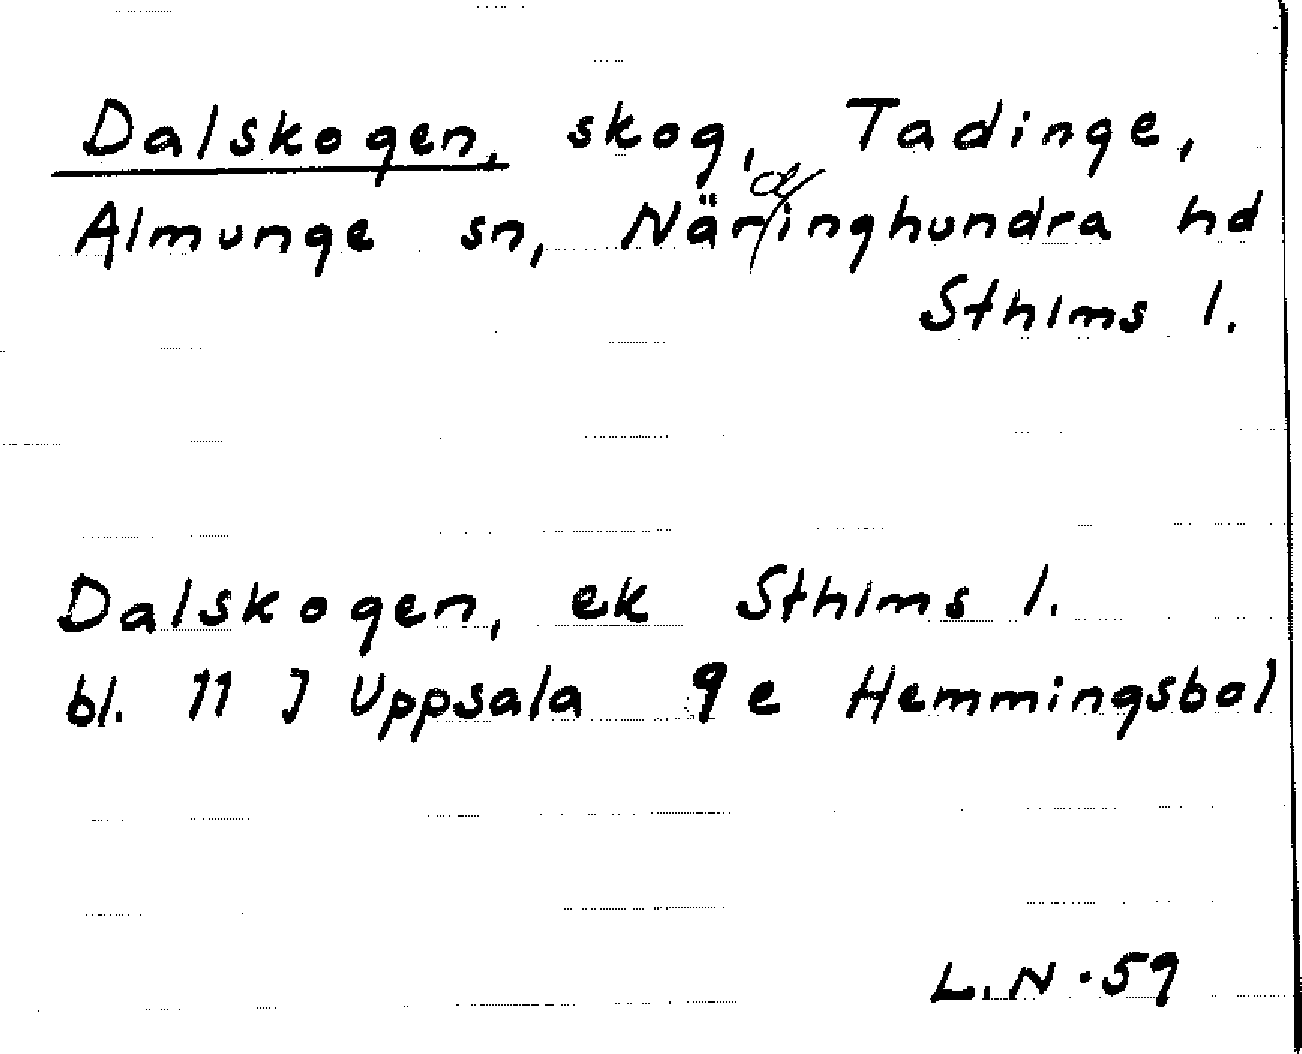 Dalskogen, skog, Tadinge,
Almunge sn, Närdinghundra hd
Sthlms l.
Dalskogen, ek Sthlms l.
bl. 11 J Uppsala 9 e Hemmingsbol
L.N. 59